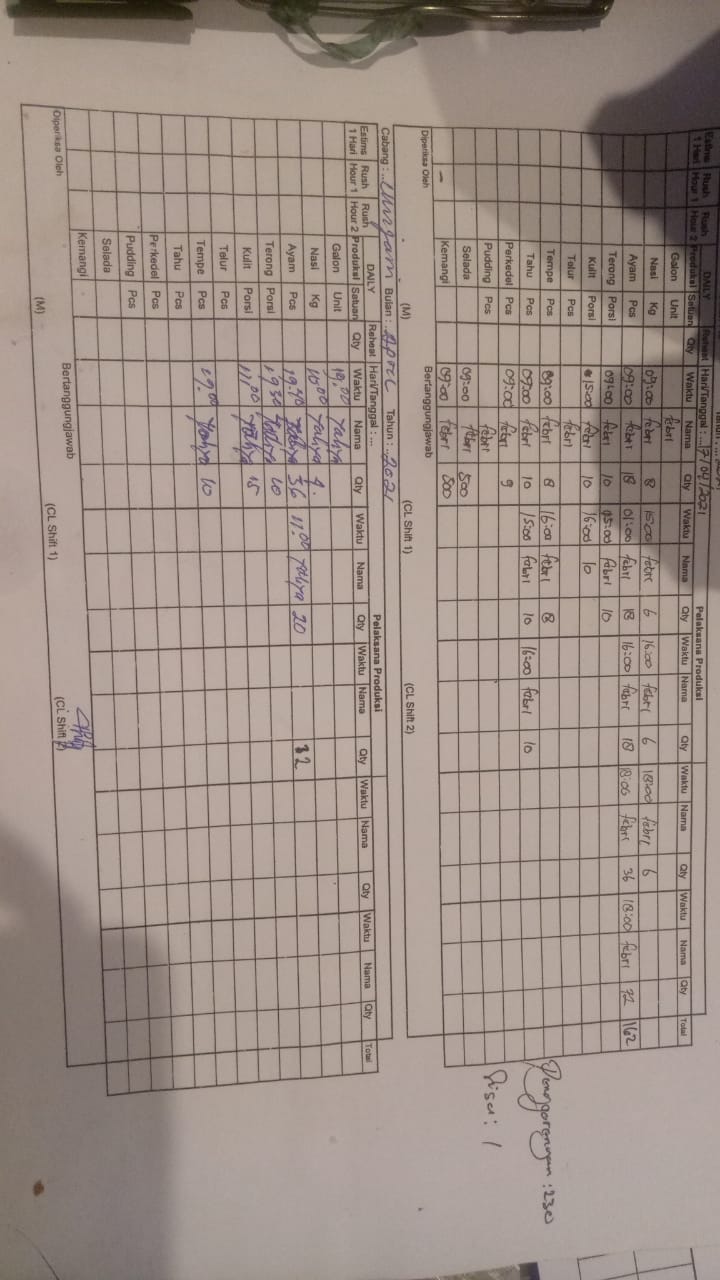 Estims Rush Rush DAILY Reheat Hari/Tanggal : ... 17/04/2021 Pelaksana Produksi
1 Hari Hour 1 Hour 2 Produksi Satuan Qty Waktu Nama Qty Waktu Nama Qty Waktu Nama Qty Waktu Nama Qty Waktu Nama Qty Total
Galon Unit febri
Nasi Kg 09:00 febri 8 15:00 febri 6 16:00 febri 6 18:00 febri 6
Ayam Pcs 09:00 febri 18 01:00 febri 18 16:00 febri 18 18:00 febri 36 18:00 febri 72 162
Terong Porsi 09:00 febri 10 05:00 febri 10
Kulit Porsi 15:00 febri 10 16:00 10
Telur Pcs febri
Tempe Pcs 09:00 febri 8 16:00 febri 8
Tahu Pcs 09:00 febri 10 15:00 febri 10 16:00 febri 10
Perkedel Pcs 09:00 febri 9
Pudding Pcs febri
Selada 09:00 febri 500
Kemangi 09:00 febri 500
Penggorengan : 230
Sisa : 1
Diperiksa Oleh Bertanggungjawab
(M) (CL Shift 1) (CL Shift 2)
Cabang : Bulan : April Tahun : 2021
Estims Rush Rush DAILY Reheat Hari/Tanggal : ... Pelaksana Produksi
1 Hari Hour 1 Hour 2 Produksi Satuan Qty Waktu Nama Qty Waktu Nama Qty Waktu Nama Qty Waktu Nama Qty Waktu Nama Qty Total
Galon Unit 19.00 Yahya
Nasi Kg 10.00 Yahya 9.
Ayam Pcs 19.30 Yahya 36 11.00 Yahya 20 32
Terong Porsi 19.30 Yahya 10
Kulit Porsi 11.00 Yahya 15
Telur Pcs
Tempe Pcs 19.00 Yahya 10
Tahu Pcs
Perkedel Pcs
Pudding Pcs
Selada
Kemangi
Diperiksa Oleh Bertanggungjawab
(M) (CL Shift 1) (CL Shift 2)